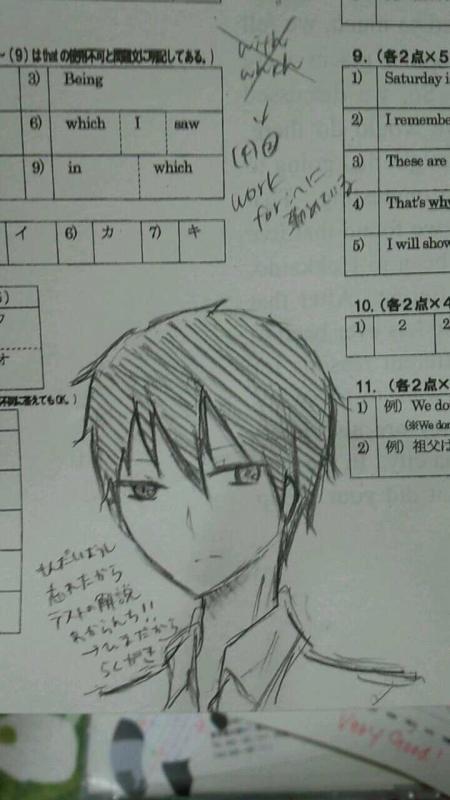 (9)はthatの使用不可と問題文に明記してある。)
3) Being
6) which I saw
9) in which
with
which
↓
work
for：〜に
勤めている
イ 6) カ 7) キ
9. (各2点×5
1) Saturday i
2) I remembe
3) These are
4) That's why
5) I will show
10. (各2点×4
1) 2 2
11. (各2点×
1) 例) We do
(※We don
2) 例) 祖父は
オ
不則に答えてもOK。)
もんだいようし
忘れたから
テストの解説
わからんち!!
→ひまだから
らくがき
Very Good!